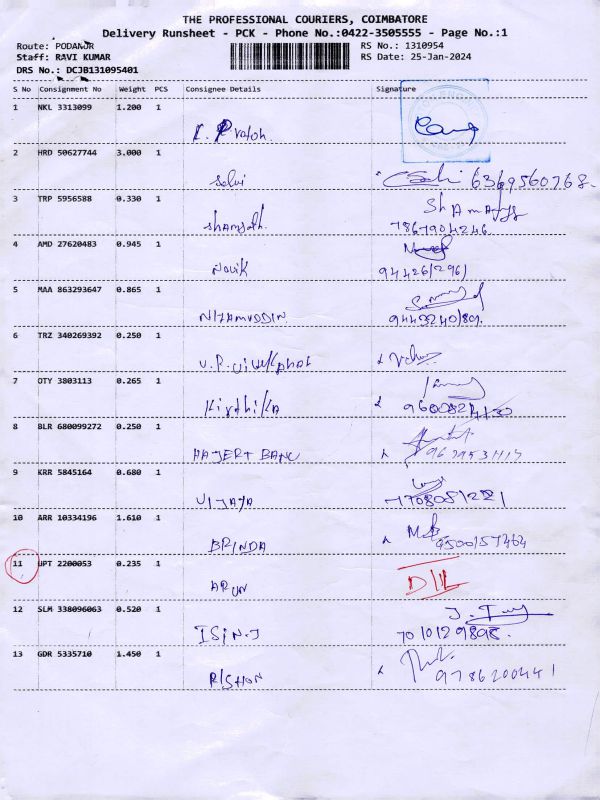 THE PROFESSIONAL COURIERS, COIMBATORE
Delivery Runsheet - PCK - Phone No.:0422-3505555 - Page No.:1
Route: PODANUR
Staff: RAVI KUMAR
DRS No.: DCJB131095401
RS No.: 1310954
RS Date: 25-Jan-2024
S No Consignment No Weight PCS Consignee Details Signature
1 NKL 3313099 1.200 1
2 HRD 50627744 3.000 1
Selvi 6369560768.
3 TRP 5956588 0.330 1
7867904246
4 AMD 27620483 0.945 1
5 MAA 863293647 0.865 1
NIZAMUDDIN
6 TRZ 340269392 0.250 1
7 OTY 3803113 0.265 1
KirthikA
8 BLR 680099272 0.250 1
HAJERT BANU
9 KRR 5845164 0.680 1
VIJAYA
10 ARR 10334196 1.610 1
BRINDA 9500157464
11 UPT 2200053 0.235 1
ARUN D/L
12 SLM 338096063 0.520 1
ISIN.J 7010129898.
13 GDR 5335710 1.450 1
RISHON 9786200441